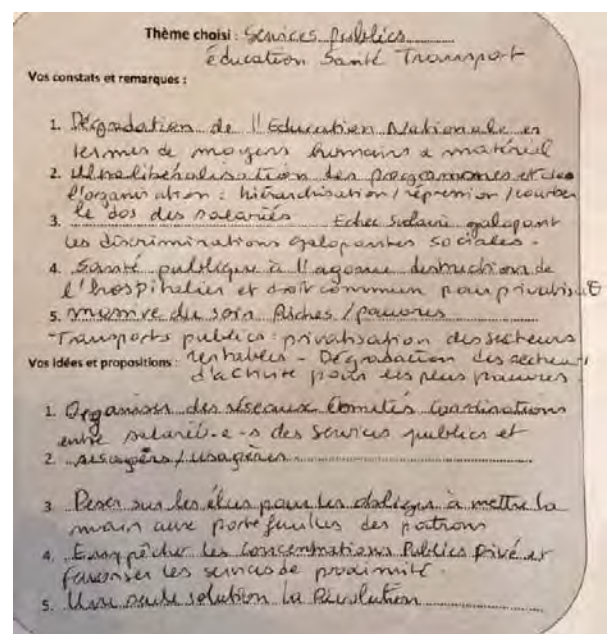 Thème choisi : Services Publics
éducation Santé Transport
Vos constats et remarques :
1. Dégradation de l'Education Nationale en
termes de moyens humains & matériel
2. Ultralibéralisation des programmes et de
l'organisation : hiérarchisation / répression / courber
le dos des salariés Echec scolaire galopant
3.
les discriminations galopantes sociales.
4. Santé publique à l'agonie destruction de
l'hospitalier et droit commun pour privatisat°
5. massive du soin Riches / pauvres
Transports publics : privatisation des secteurs
rentables - Dégradation des secteurs
Vos idées et propositions :
d'activité pour les plus pauvres
1. Organiser des réseaux Comités Coordinations
entre salarié-e-s des services publics et
2. usagers / usagères
3. Peser sur les élus pour les obliger à mettre la
main aux portefeuilles des patrons
4. Empêcher les concentrations Publics privé et
favoriser les services de proximité.
5. Une seule solution la Révolution